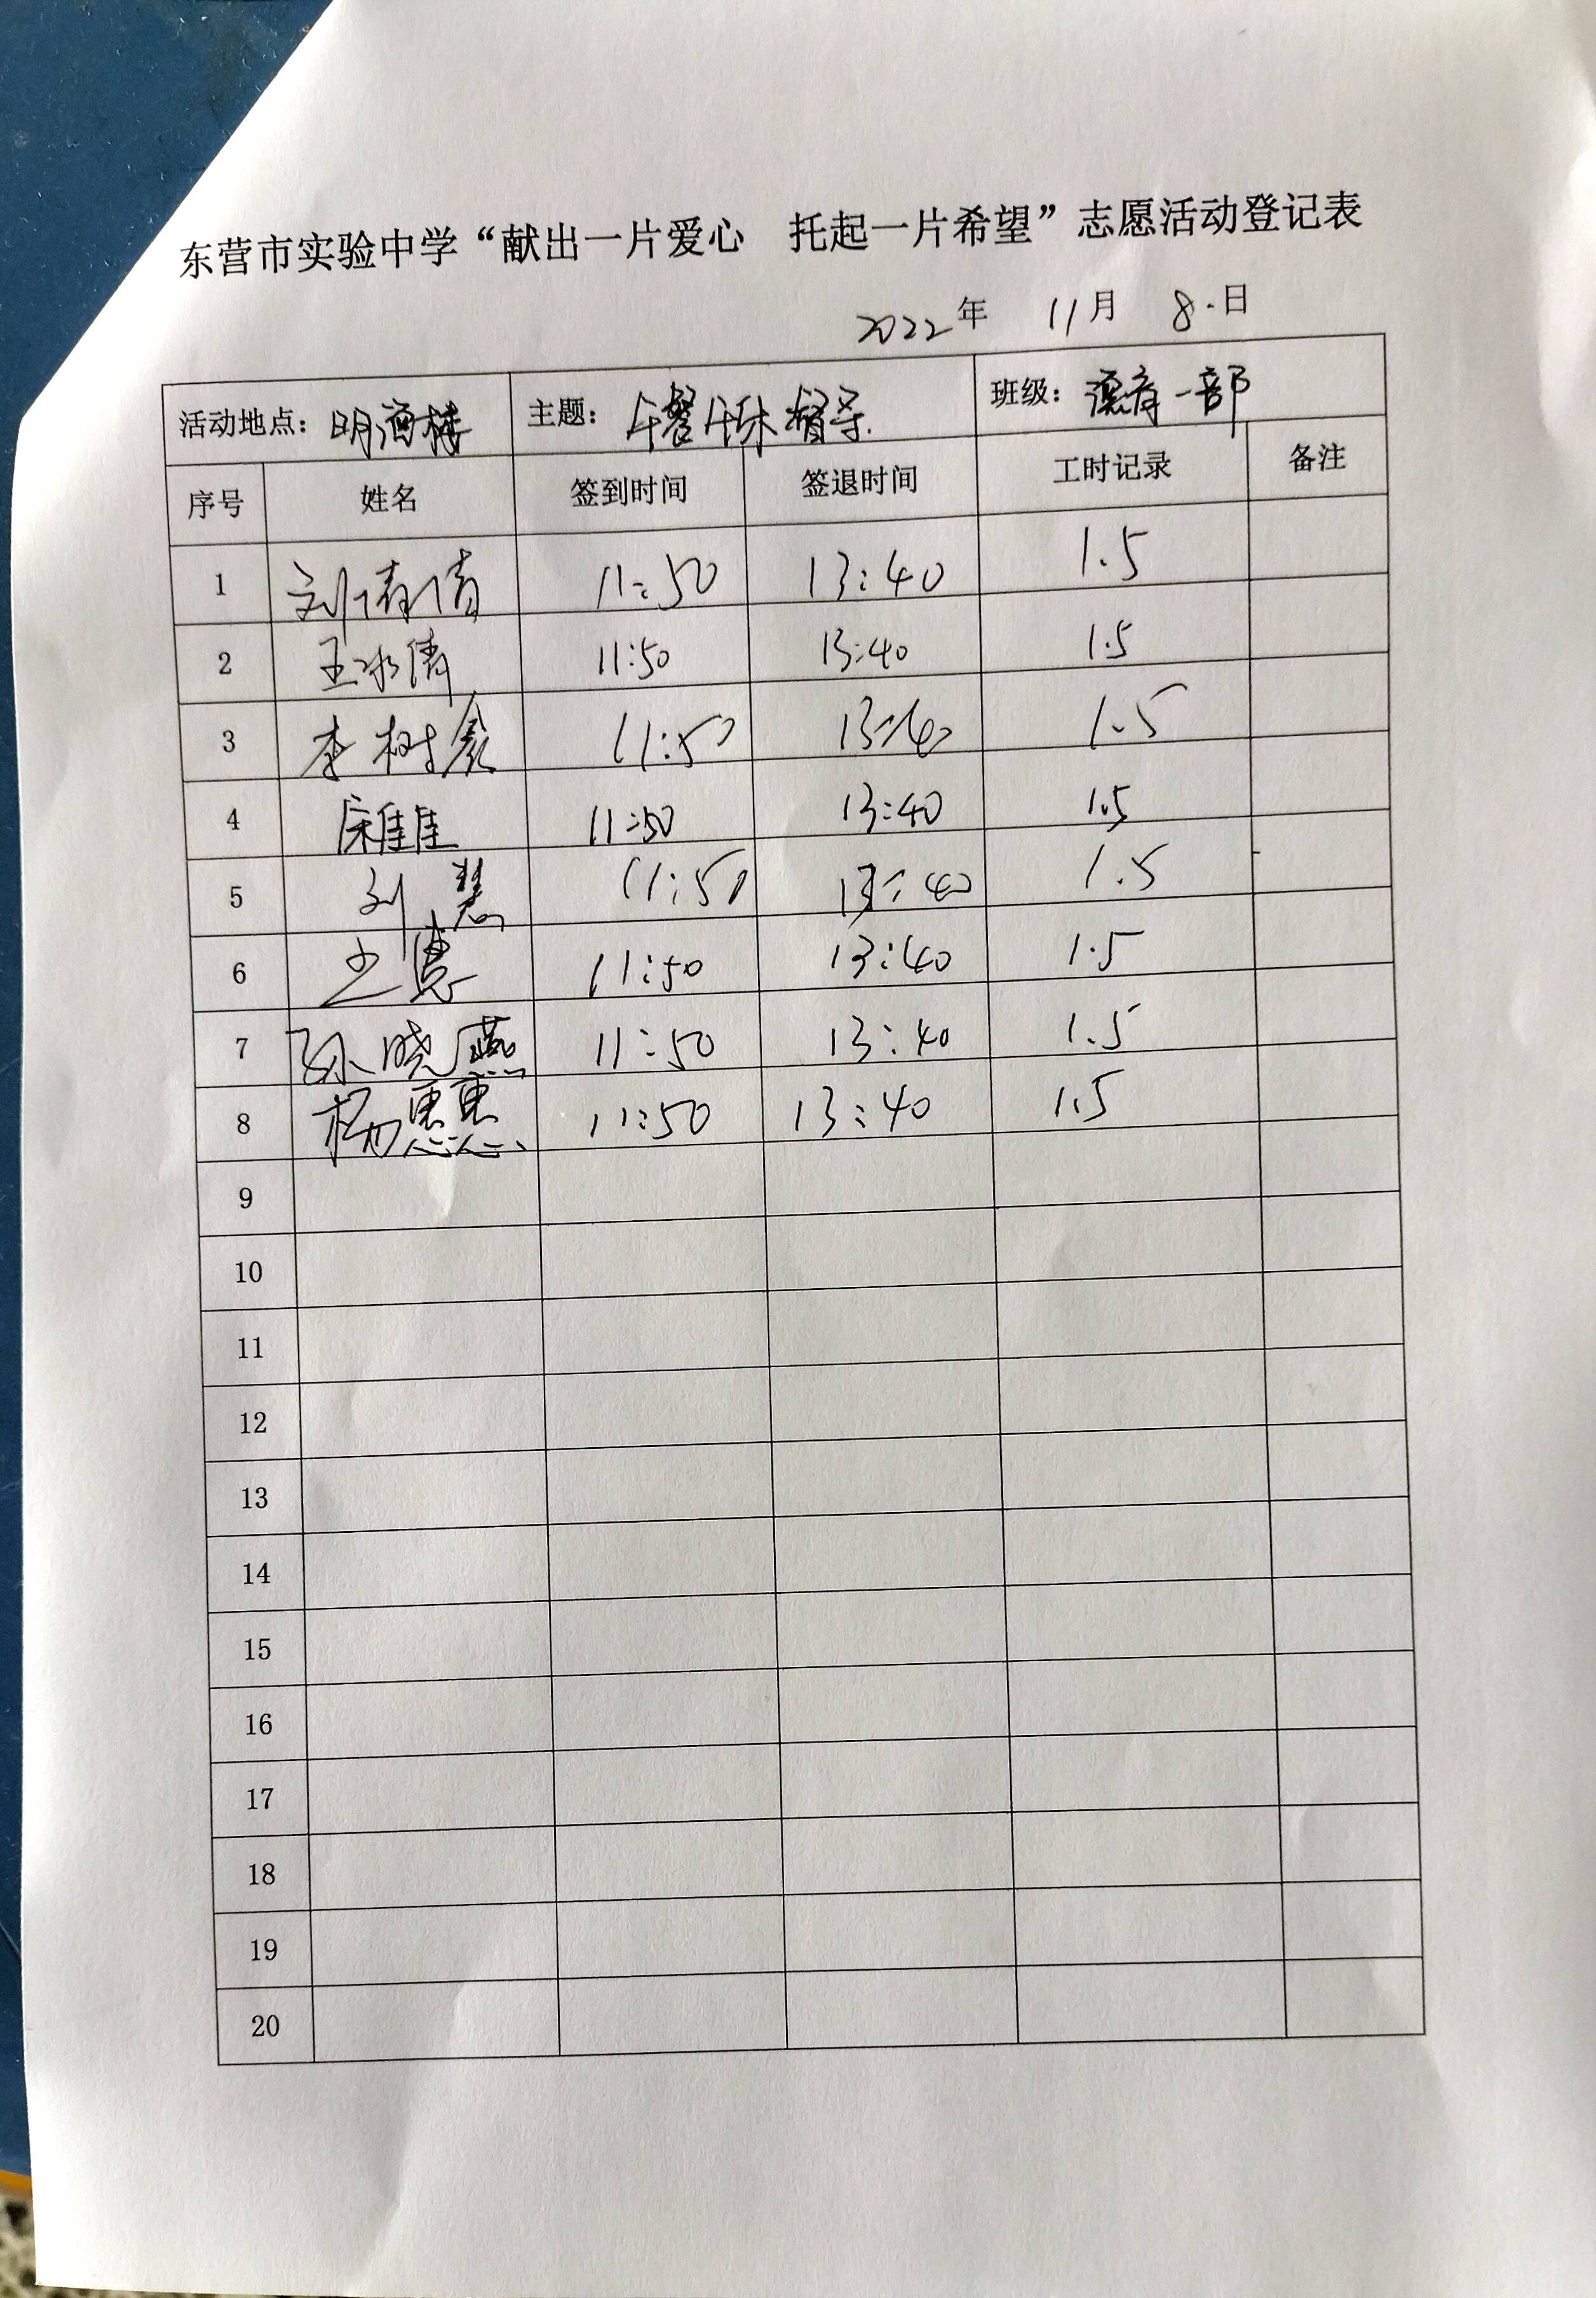 东营市实验中学“献出一片爱心 托起一片希望”志愿活动登记表
2022年 11月 8日
活动地点：明 楼 主题：午餐午休督导 班级：德育一部
序号 姓名 签到时间 签退时间 工时记录 备注
1 刘倩倩 11:50 13:40 1.5
2 王冰清 11:50 13:40 1.5
3 李树 11:50 13:40 1.5
4 11:50 13:40 1.5
5 刘慧 11:50 13:40 1.5
6 王惠 11:50 13:40 1.5
7 孙晓燕 11:50 13:40 1.5
8 杨惠惠 11:50 13:40 1.5
9
10
11
12
13
14
15
16
17
18
19
20